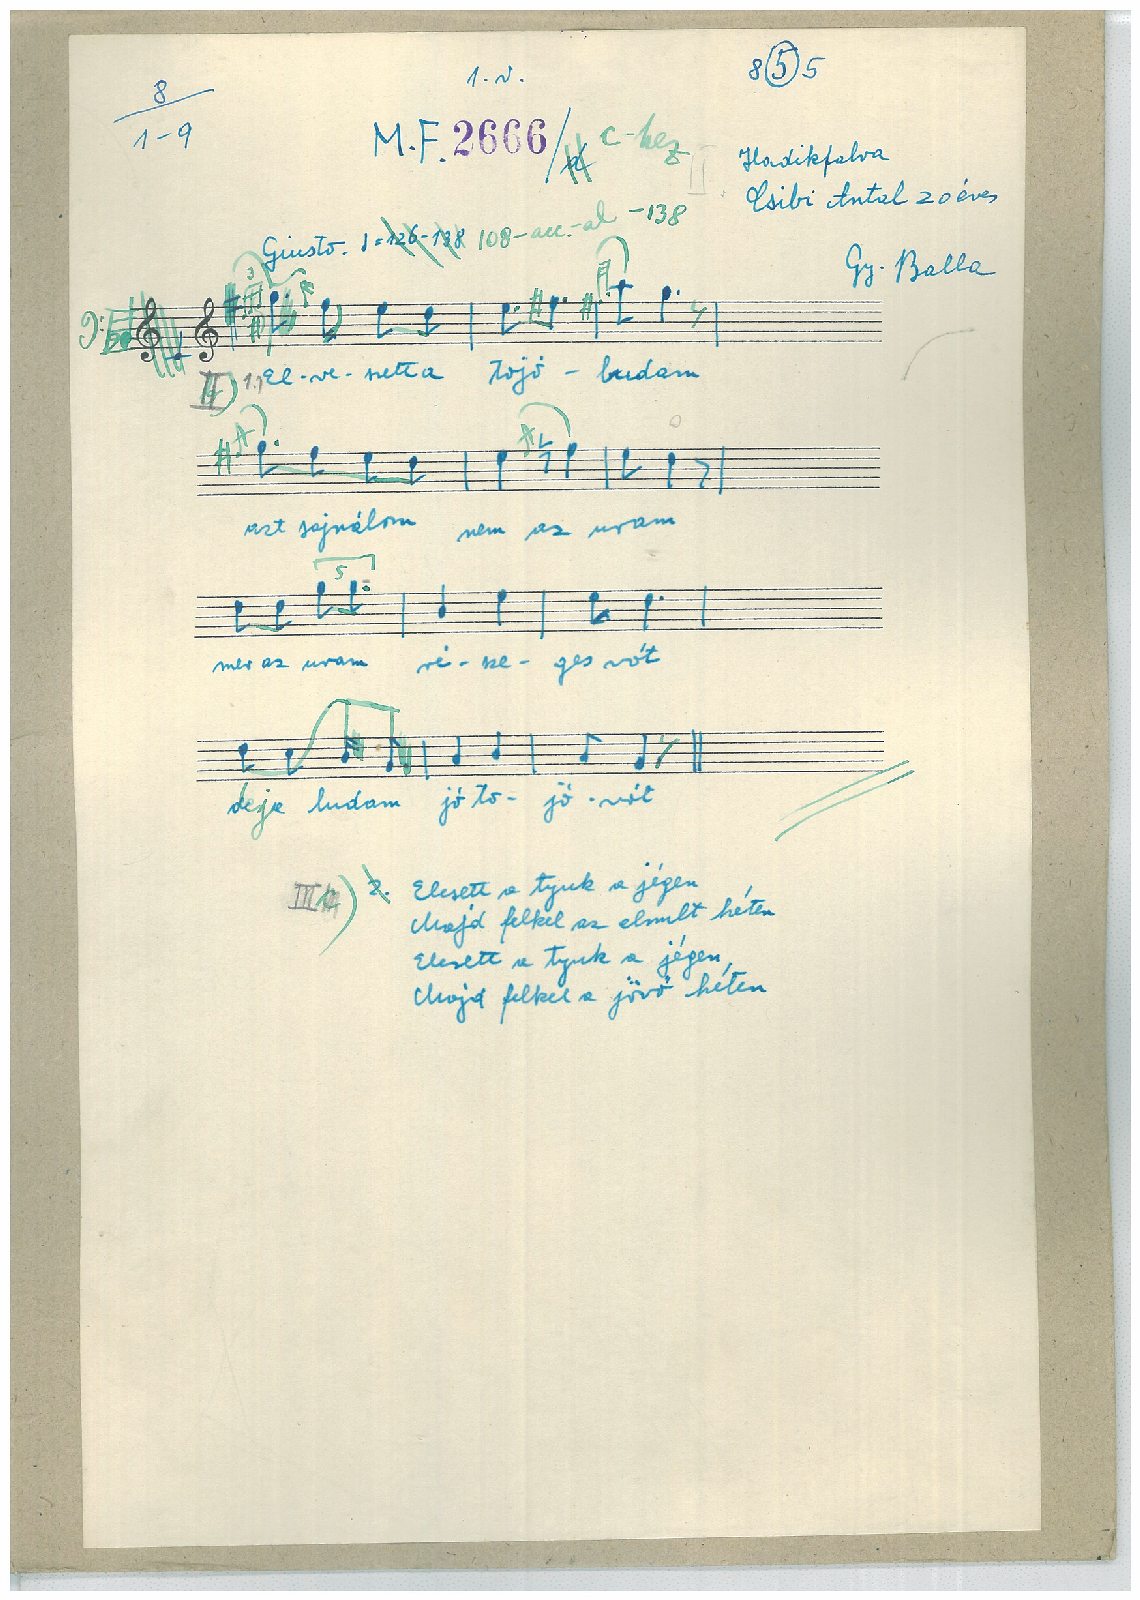 8
1-9
1.v.
8 5 5
M.F. 2666/ c-hez
Hadikfalva
Csibi Antal 20 éves
Gy. Balla
Giusto. ♩=126-138 108-acc.-al -138
3
II 1.) El-ve-szett a tojó-ludam
azt sajnálom nem az uram
5
mer az uram ré-sze-ges vót
deje ludam jó to-jó-vót
III 2. Elesett a tyuk a jégen
Majd felkel az elmult héten
Elesett a tyuk a jégen
Majd felkel a jövő héten